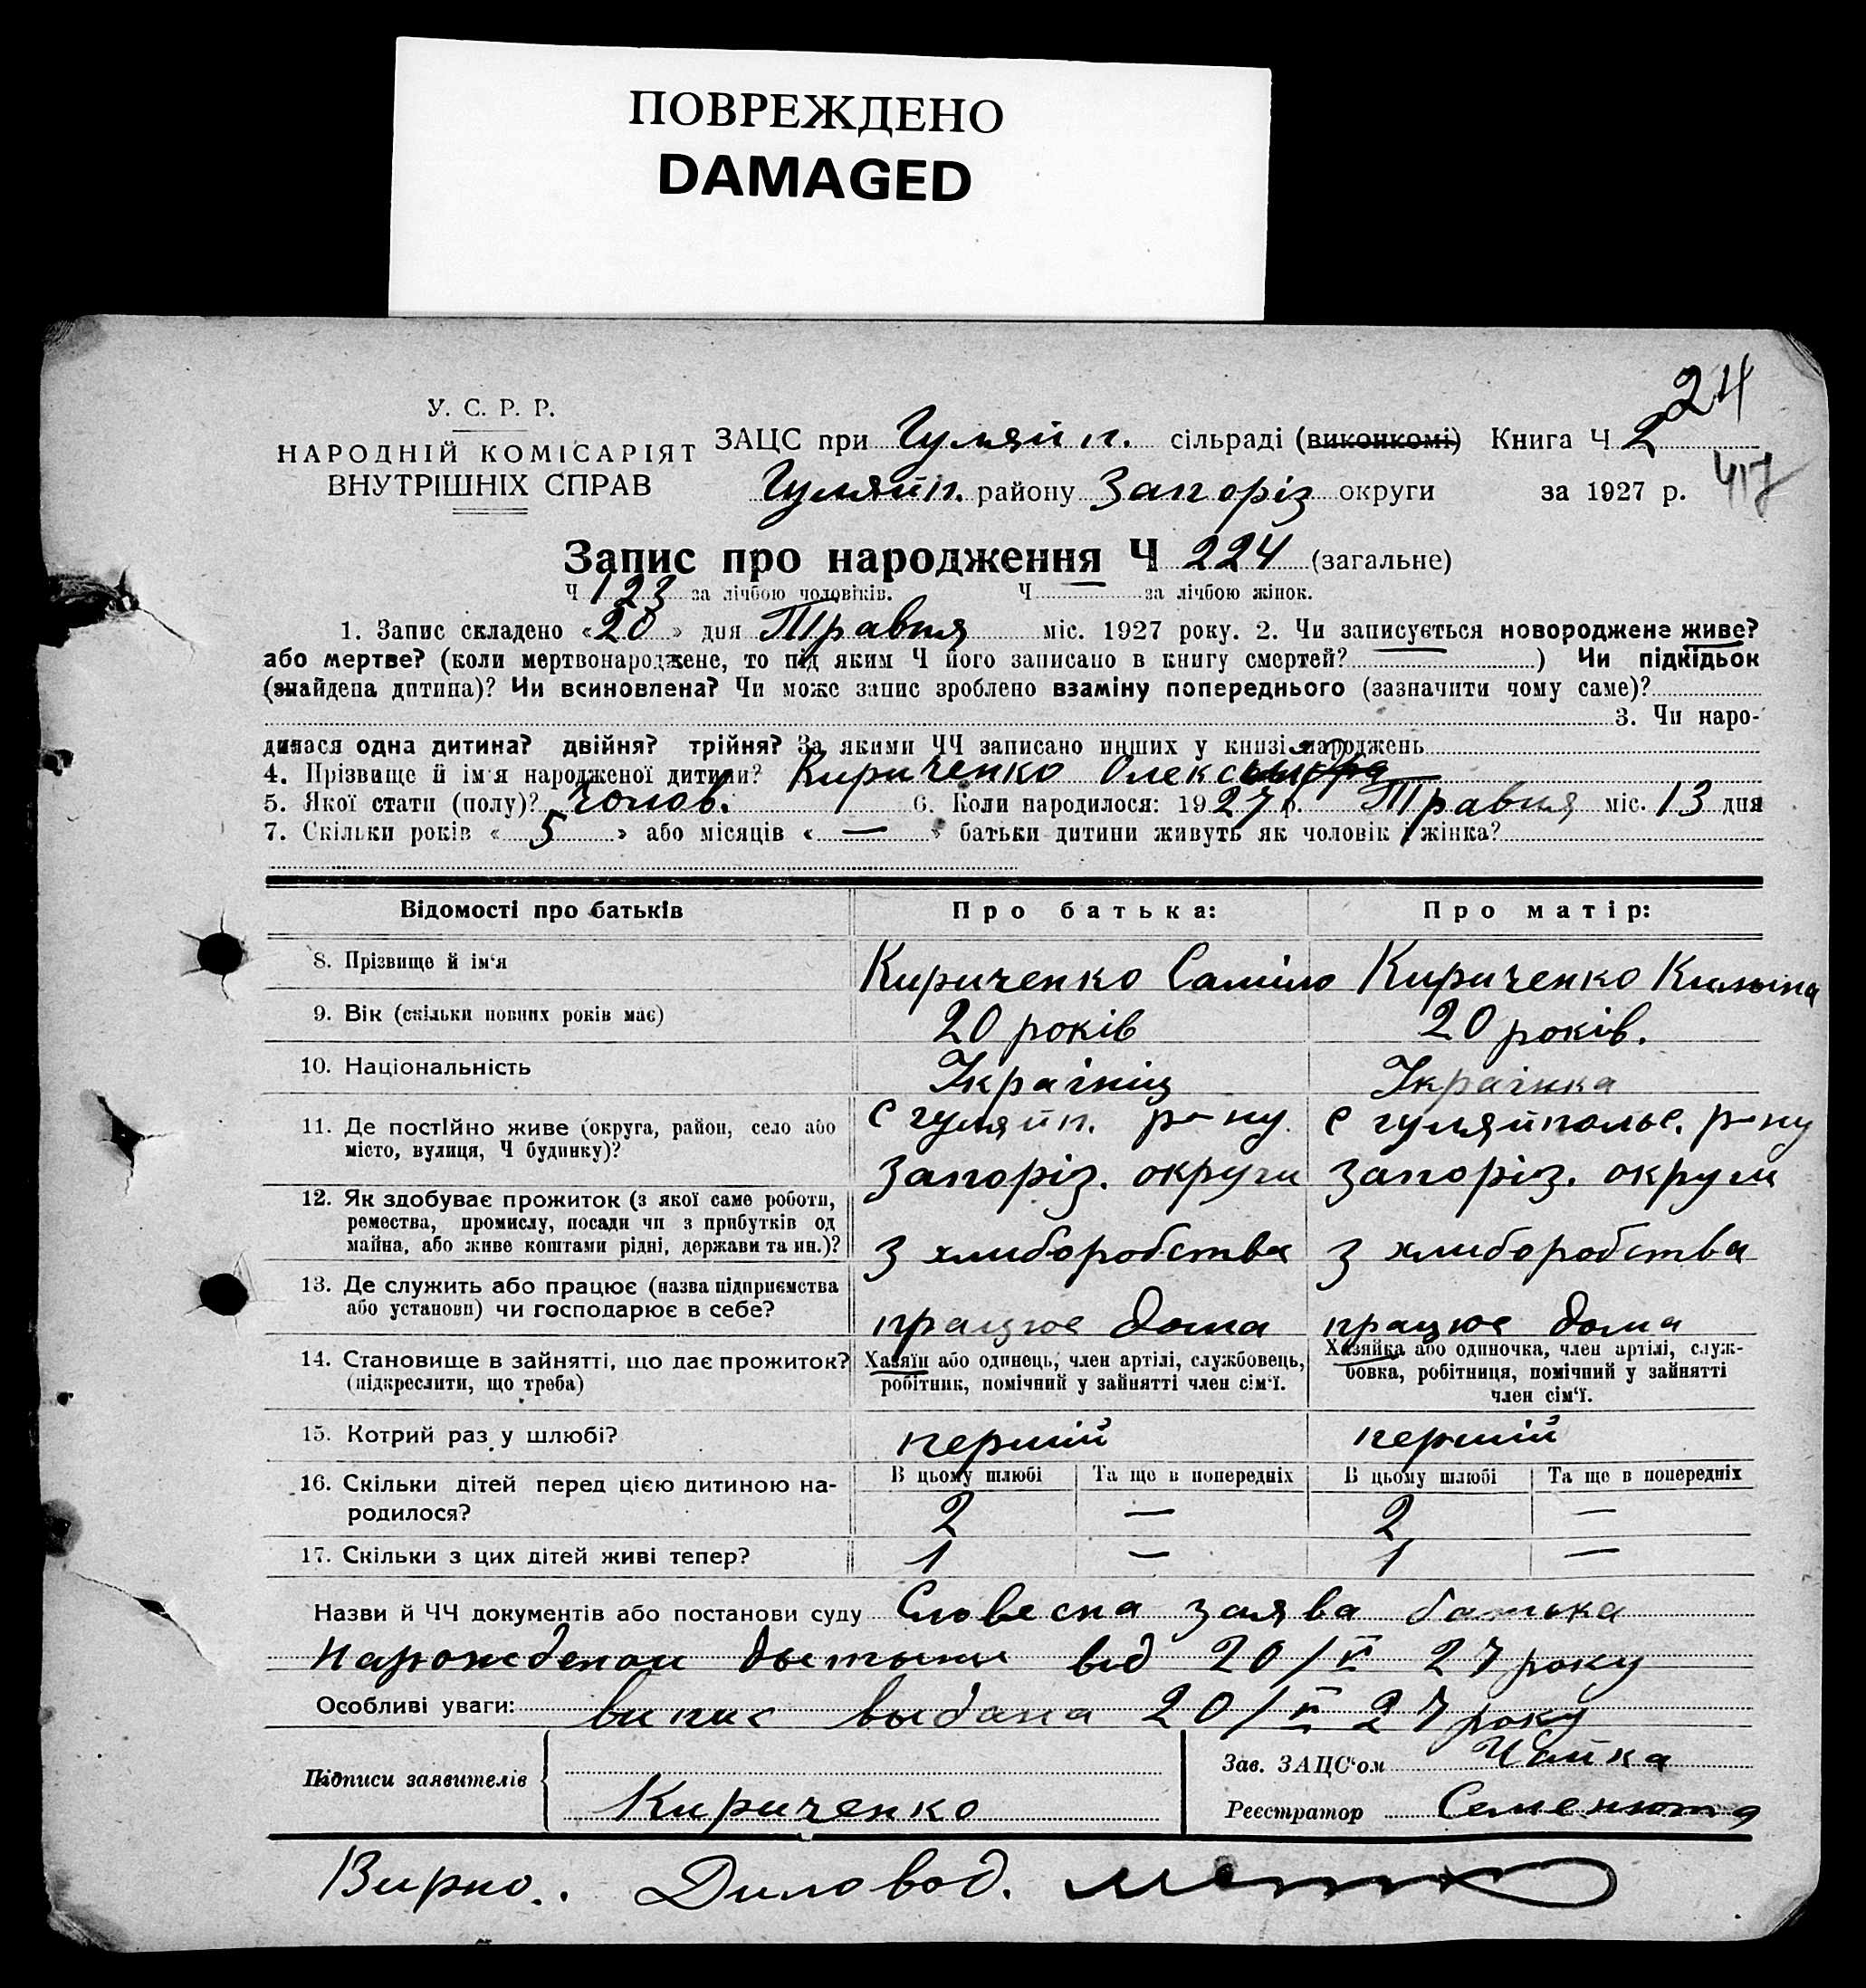 ПОВРЕЖДЕНО
DAMAGED
24
У. С. Р. Р.
НАРОДНІЙ КОМІСАРІЯТ
ВНУТРІШНІХ СПРАВ
ЗАЦС при Гуляйп. сільраді (виконкомі) Книга Ч 2
Гуляйп. району Запоріз округи за 1927 р. 417
Запис про народження Ч 224 (загальне)
Ч 123 за лічбою чоловіків. Ч — за лічбою жінок.
1. Запис складено «20» дня Травня міс. 1927 року. 2. Чи записується новороджене живе?
або мертве? (коли мертвонароджене, то під яким Ч його записано в книгу смертей? — ) Чи підкідьок
(знайдена дитина)? Чи всиновлена? Чи може запис зроблено взаміну попереднього (зазначити чому саме)?
3. Чи наро-
дилася одна дитина? двійня? трійня? За якими ЧЧ записано инших у книзі народжень
4. Прізвище й ім'я народженої дитини? Кириченко
5. Якої стати (полу)? Чолов. 6. Коли народилося: 1927 р. Травня міс. 13 дня
7. Скільки років « 5 » або місяців « — » батьки дитини живуть як чоловік і жінка?
Відомості про батьків Про батька: Про матір:
8. Прізвище й ім'я Кириченко Саміло Кириченко
9. Вік (скільки повних років має) 20 років 20 років.
10. Національність Українец Українка
11. Де постійно живе (округа, район, село або
місто, вулиця, Ч будинку)?
с гуляйп. р-ну с гуляйпольс. р-ну
Запоріз. округи Запоріз. округи
12. Як здобуває прожиток (з якої саме роботи,
ремества, промислу, посади чи з прибутків од
майна, або живе коштами рідні, держави та ин.)?
з хлиборобства з хлиборобства
13. Де служить або працює (назва підприємства
або установи) чи господарює в себе?
працює дома працює дома
14. Становище в зайнятті, що дає прожиток?
(підкреслити, що треба)
Хазяїн або одинець, член артілі, службовець,
робітник, помічний у зайнятті член сім'ї.
Хазяйка або одиночка, член артілі, служ-
бовка, робітниця, помічний у зайнятті
член сім'ї.
15. Котрий раз у шлюбі? першій першій
В цьому шлюбі Та ще в попередніх В цьому шлюбі Та ще в попередніх
16. Скільки дітей перед цією дитиною на-
родилося?
2 — 2 —
17. Скільки з цих дітей живі тепер? 1 — 1 —
Назви й ЧЧ документів або постанови суду Словесна заява батька
від 20/V 27 року
Особливі уваги: випис выдана 20/V 27 року
Підписи заявителів
Кириченко
Зав. ЗАЦС'ом Чайка
Реєстратор Семенюта
Вирно. Диловод.